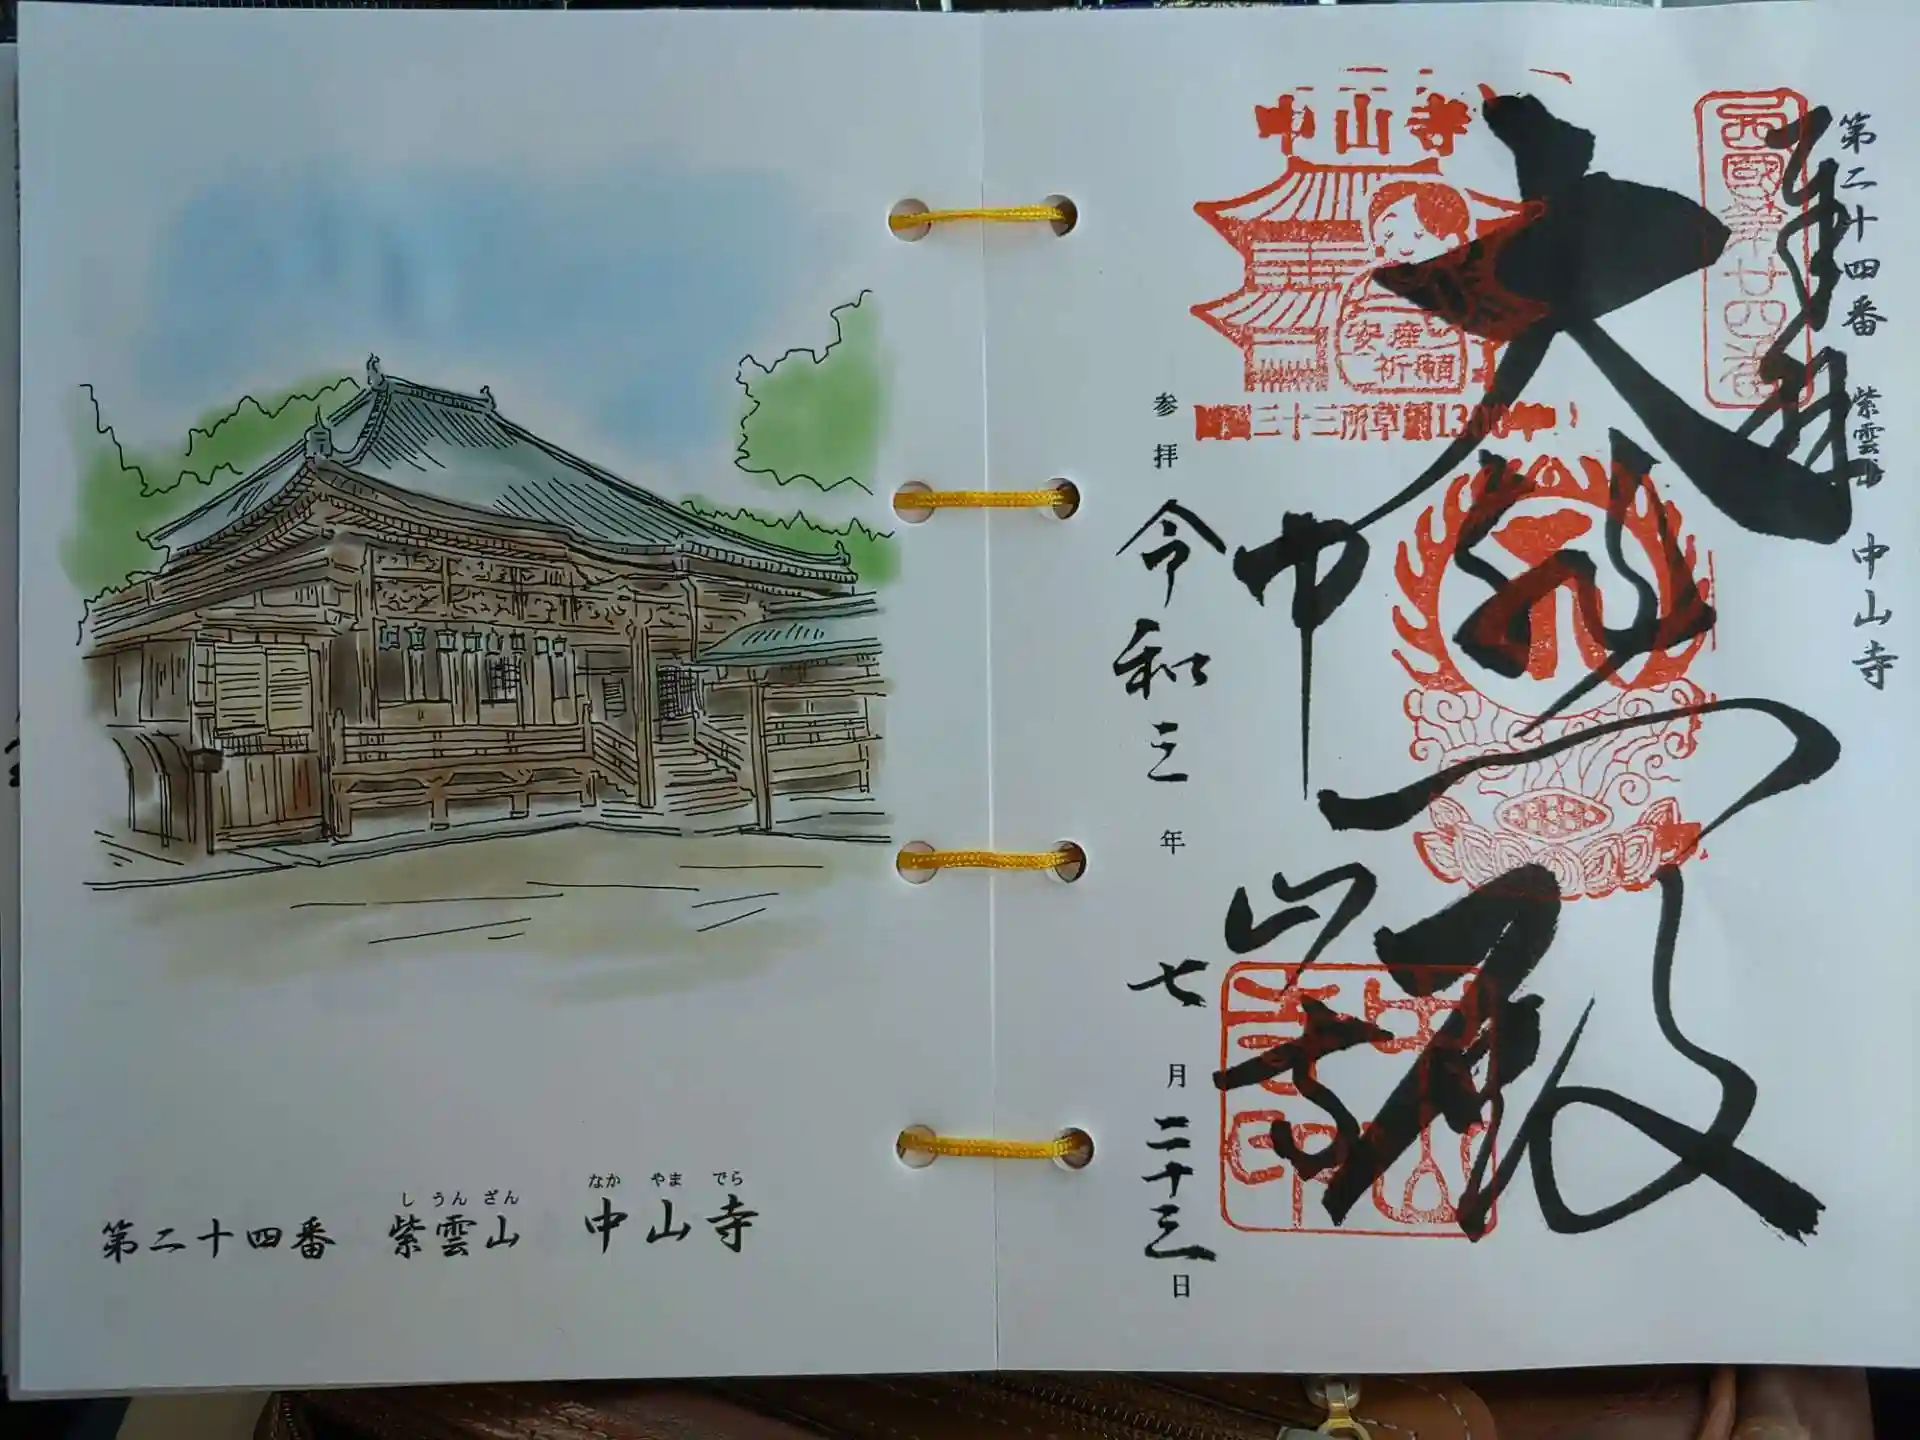 しうんざん
なかやまでら
第二十四番 紫雲山 中山寺
第二十四番 紫雲山 中山寺
西國第廿四番
奉拝
大悲殿
中山寺
中山寺
安産
祈願
三十三所草創1300年
中山寺印
参拝 令和三年 七月二十三日